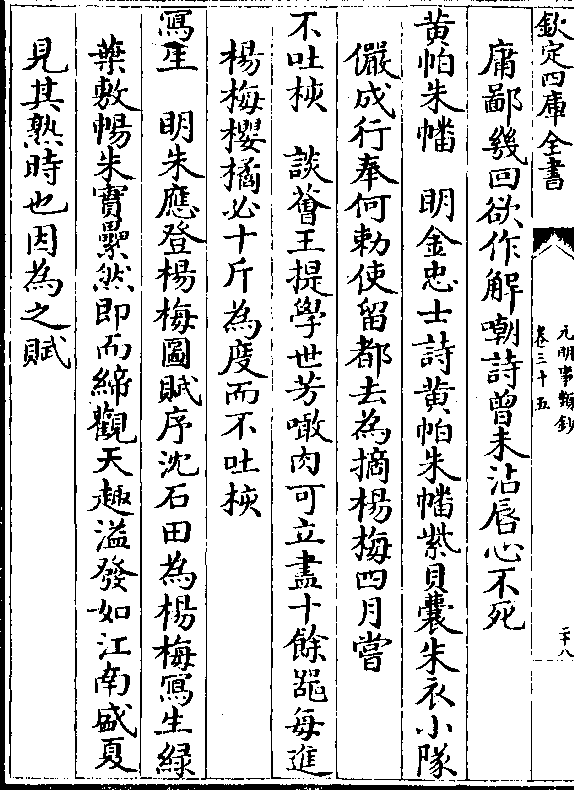 欽定四庫全書
元明事類鈔
卷三十五
二十八
庸鄙幾回欲作解嘲詩曾未沾唇心不死
黄帕朱幡　明金忠士詩黄帕朱幡紫貝囊朱衣小隊
儼成行奉何勅使留都去為摘楊梅四月嘗
不吐核　談薈王提學世芳噉肉可立盡十餘噐每進
楊梅櫻橘必十斤為度而不吐核
寫生　明朱應登楊梅圖賦序沈石田為楊梅寫生緑
葉敷暢朱實纍然即而締觀天趣溢發如江南盛夏
見其熟時也因為之賦